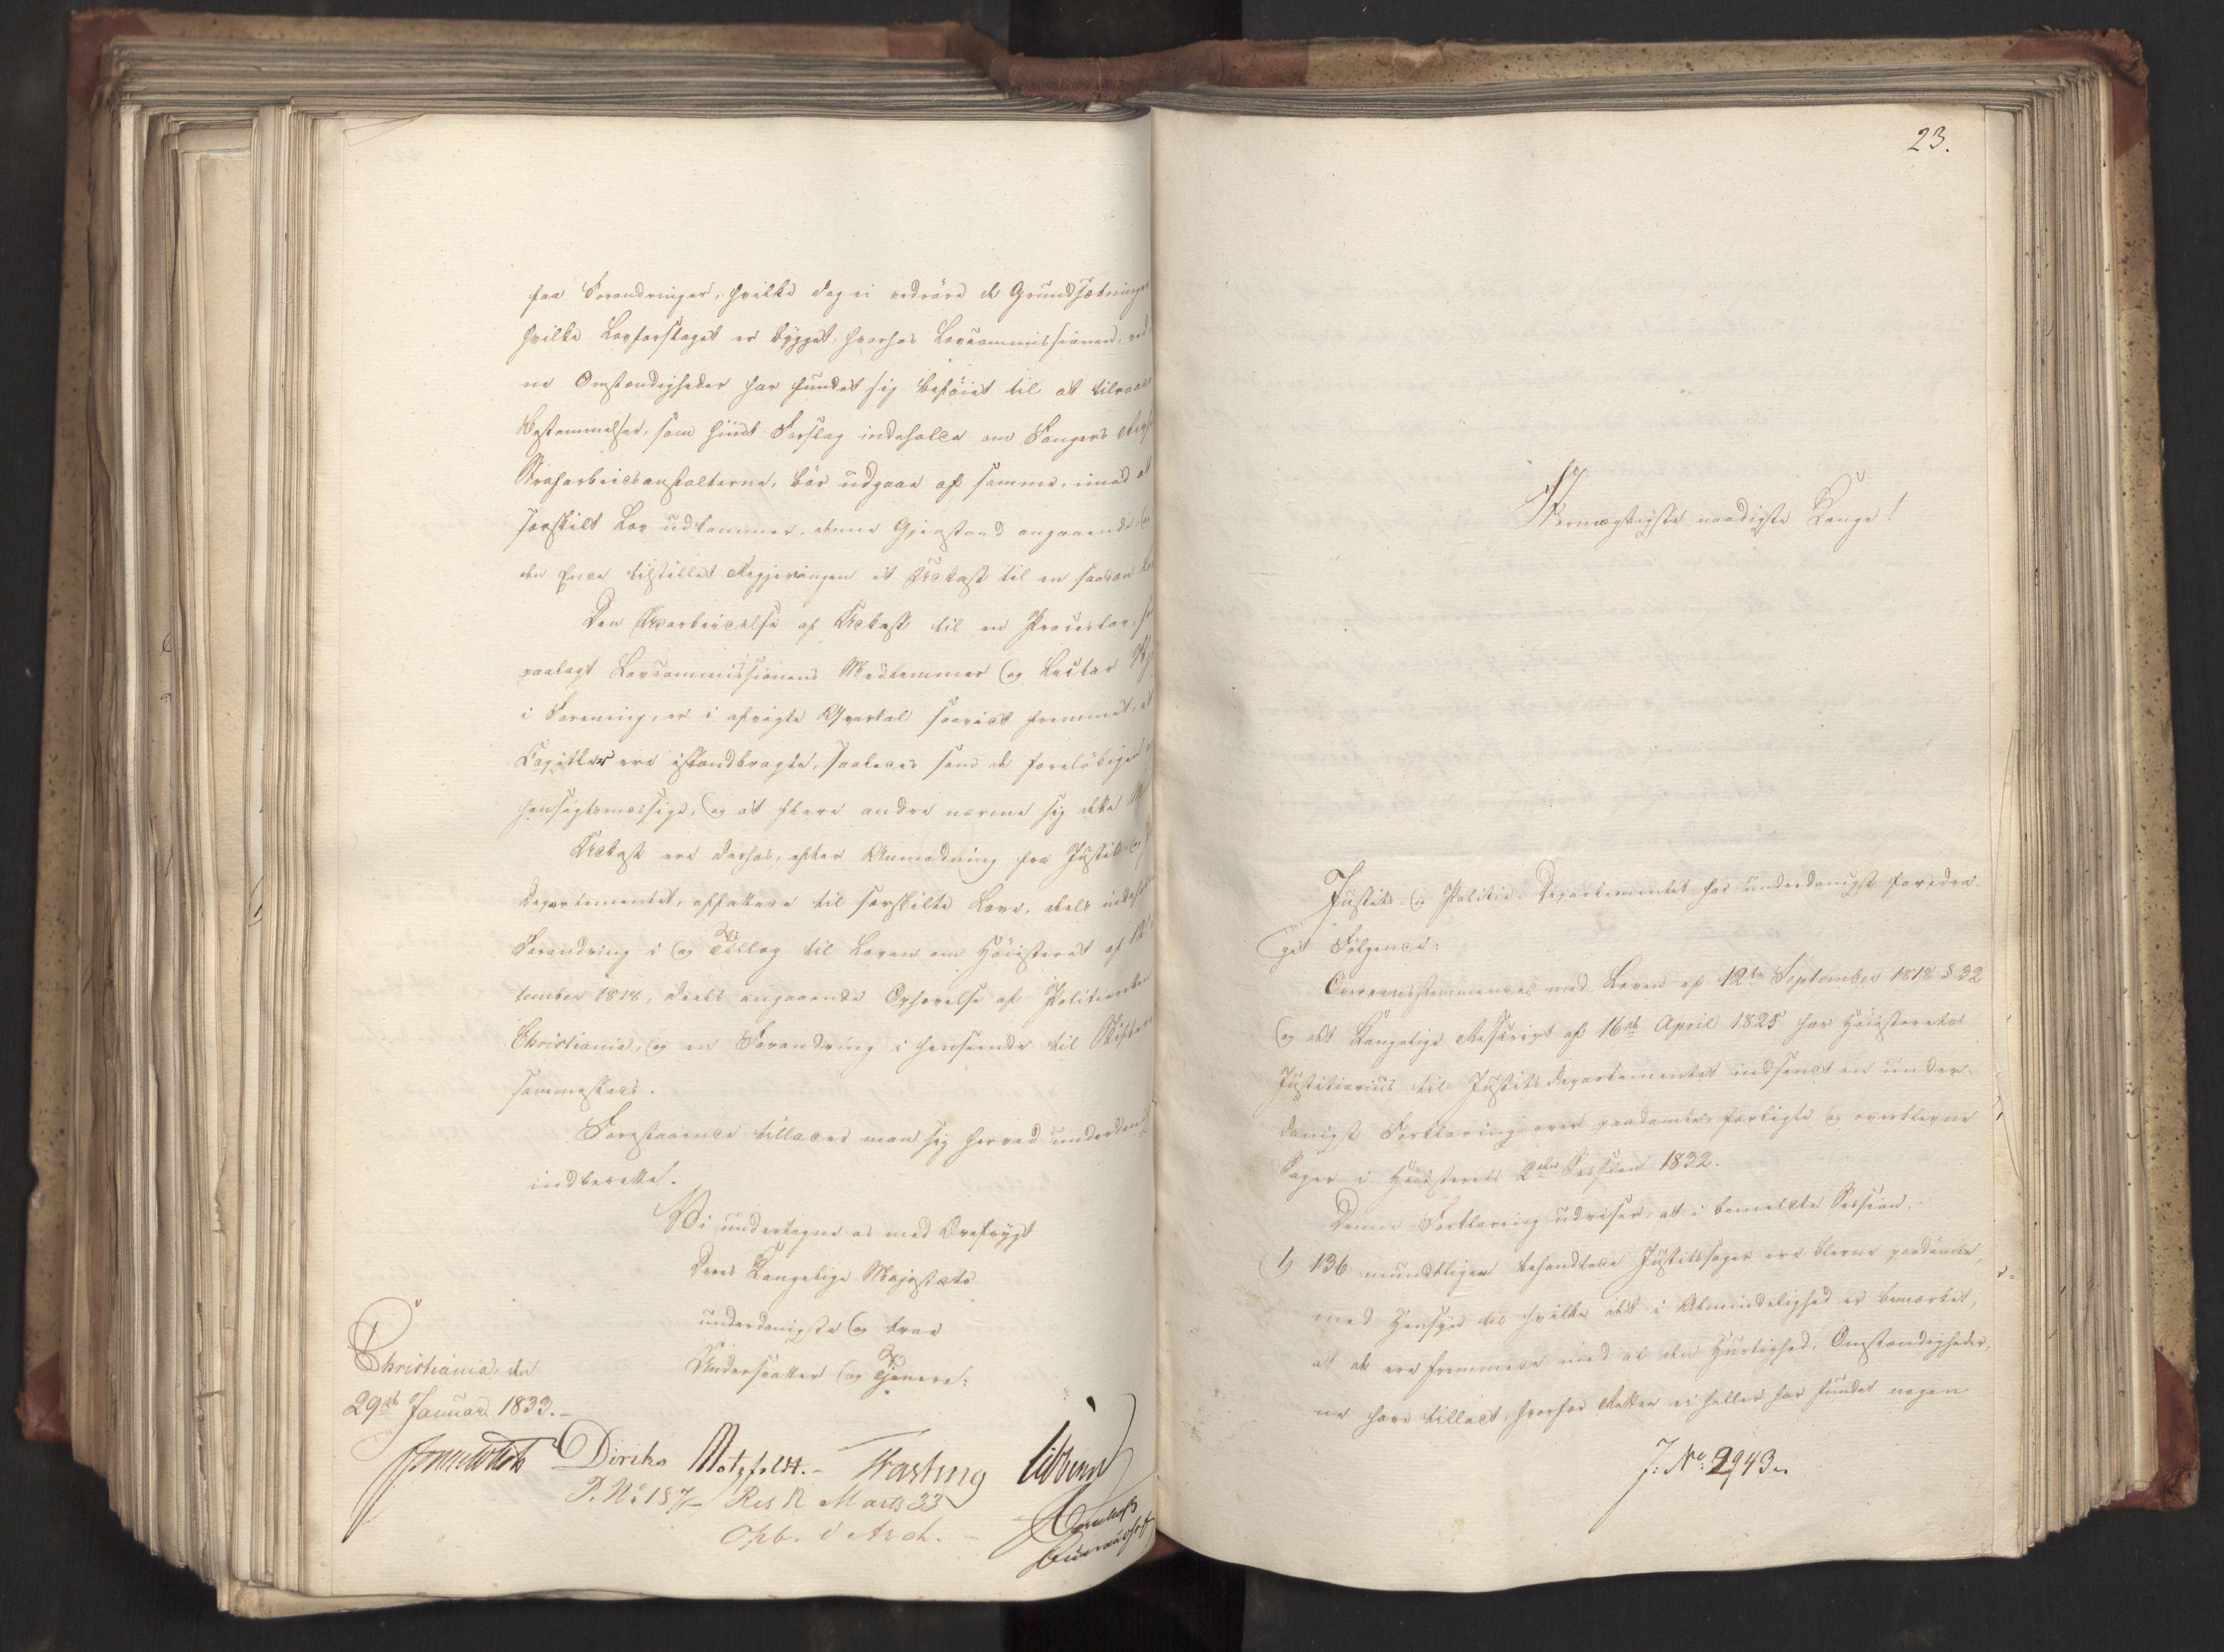 faa Forandringer, hvilke dog ei vedröre de Grundsætninger
hvilke Lovforslaget er bygget, hvorhos Lovcommissionen, ved
ne Omstændigheder har fundet sig beföiet til at tilraade
Bestemmelser, som hiint Forslag indeholde om Fangers
Strafarbeidsanstalterne, bör udgaae af samme, imod at
særskilt Lov udkommer, denne Gjenstand angaaende, og
den Ende tilstillet Regjeringen et Udkast til en saadan Lov
Den Udarbeidelse af Udkast til en Proceslov, som
paalagt Lovcommissionens Medlemmer og Lector
i Forening, er i afvigte Qvartal saavidt fremmet, at
Capitler ere istandbragte, saaledes som de foreløbigen
hensigtsmæssige, og at flere andre nærme sig dette
Udkast ere derhos, efter Anmodning fra Justits- og
Departementet, affattede til særskilte Love, deels indeholde
Forandring i og Tillæg til Loven om Höiesteret af 12
tember 1818, deels angaaende Ophævelse af Politieretten
Christiania, og en Forandring i Henseende til Skifte
sammesteds.
Forestaaende tillades man sig herved underdanigst
indberettet.
Vi undertegne os med Ærefrygt
Deres Kongelige Majestæts
underdanigste og troe
Undersaatter og Tjenere:
Christiania, den
29de Januar 1833.-
Diriks Motzfeldt.- Fasting
P. No 187/- Res 12 Marts 33
Opb. i Arch. -
23.
Stormægtigste naadigste Konge!
Justits- og Politie-Departementet har underdanigst foredra-
get Fölgende:
Overeensstemmende med Loven af 12te September 1818 § 32
og det Kongelige Rescript af 16de April 1825 har Höiesterets
Justitiarius til Justitsdepartementet indsendt en under-
danigst Forklaring over paadömte, forligte og overblevne
Sager i Höiesterets 2den Session 1832.
Denne Forklaring udviser, at i bemeldte Session,
1) 136 mundtligen behandlede Justitssager ere blevne paadömte,
med Hensyn til hvilke det i Almindelighed er bemærket,
at de ere fremmede med al den Hurtighed, Omstændigheder-
ne have tilladt, hvorfor Retten ei heller har fundet nogen
J: No 2943.